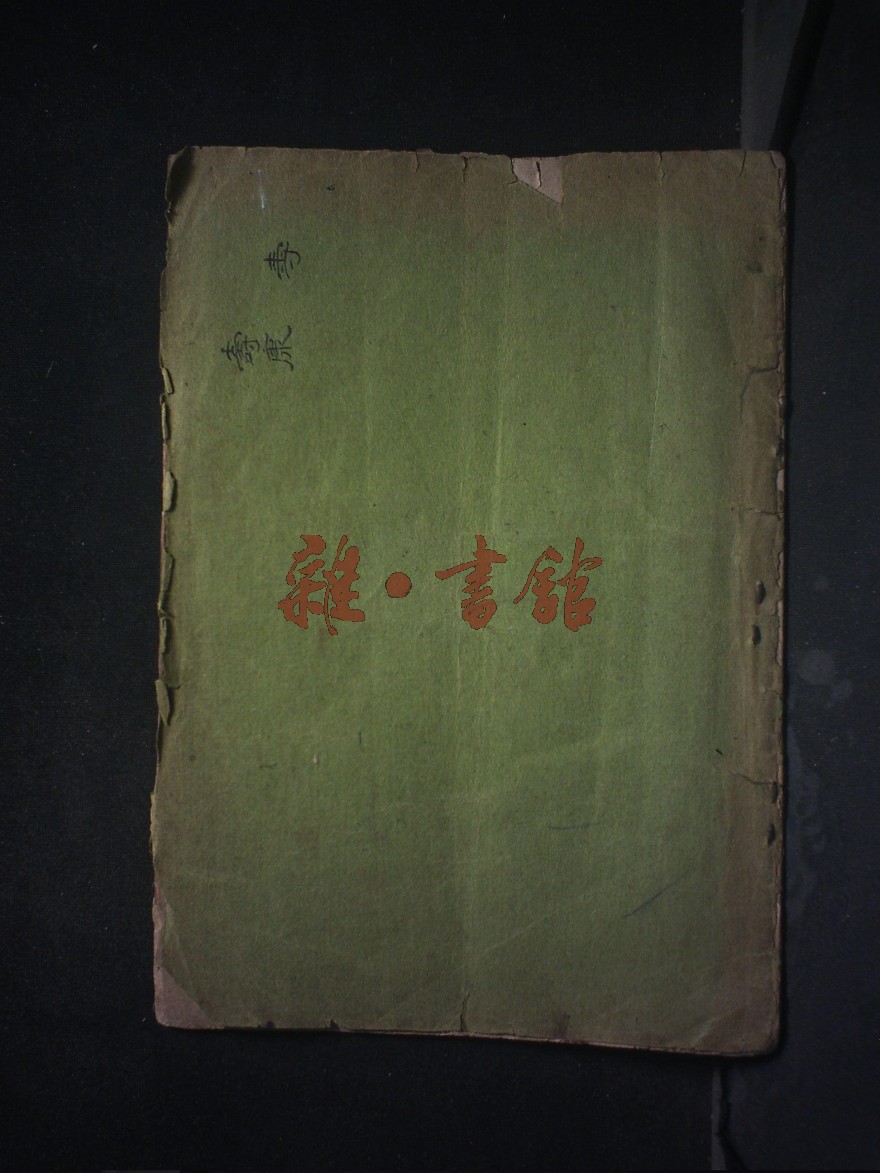 寿
康
壽
雜·書館